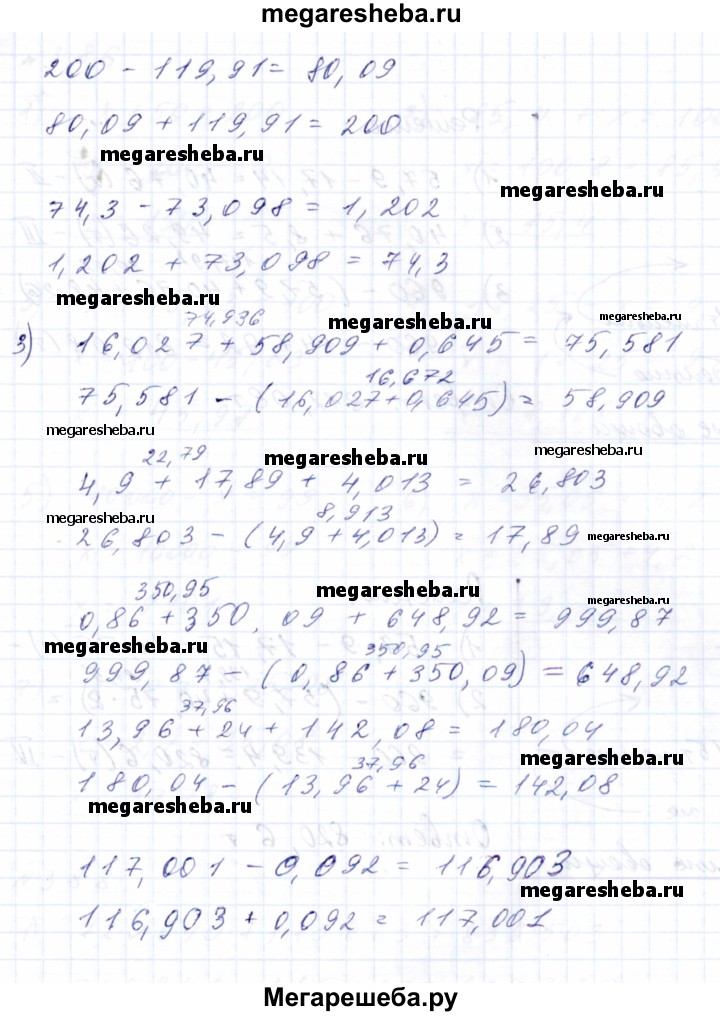 megaresheba.ru
200 - 119,91 = 80,09
80,09 + 119,91 = 200
megaresheba.ru
megaresheba.ru
74,3 - 73,098 = 1,202
1,202 + 73,098 = 74,3
megaresheba.ru
megaresheba.ru
74,936
megaresheba.ru
3) 16,027 + 58,909 + 0,645 = 75,581
16,672
75,581 - (16,027+0,645) = 58,909
megaresheba.ru
22,79
megaresheba.ru
megaresheba.ru
4,9 + 17,89 + 4,013 = 26,803
megaresheba.ru
8,913
26,803 - (4,9 + 4,013) = 17,89
megaresheba.ru
350,95
megaresheba.ru
megaresheba.ru
0,86 + 350,09 + 648,92 = 999,87
megaresheba.ru
350,95
999,87 - (0,86 + 350,09) = 648,92
37,96
13,96 + 24 + 142,08 = 180,04
megaresheba.ru
37,96
180,04 - (13,96 + 24) = 142,08
megaresheba.ru
117,001 - 0,092 = 116,903
megaresheba.ru
116,903 + 0,092 = 117,001
Мегарешеба.ру